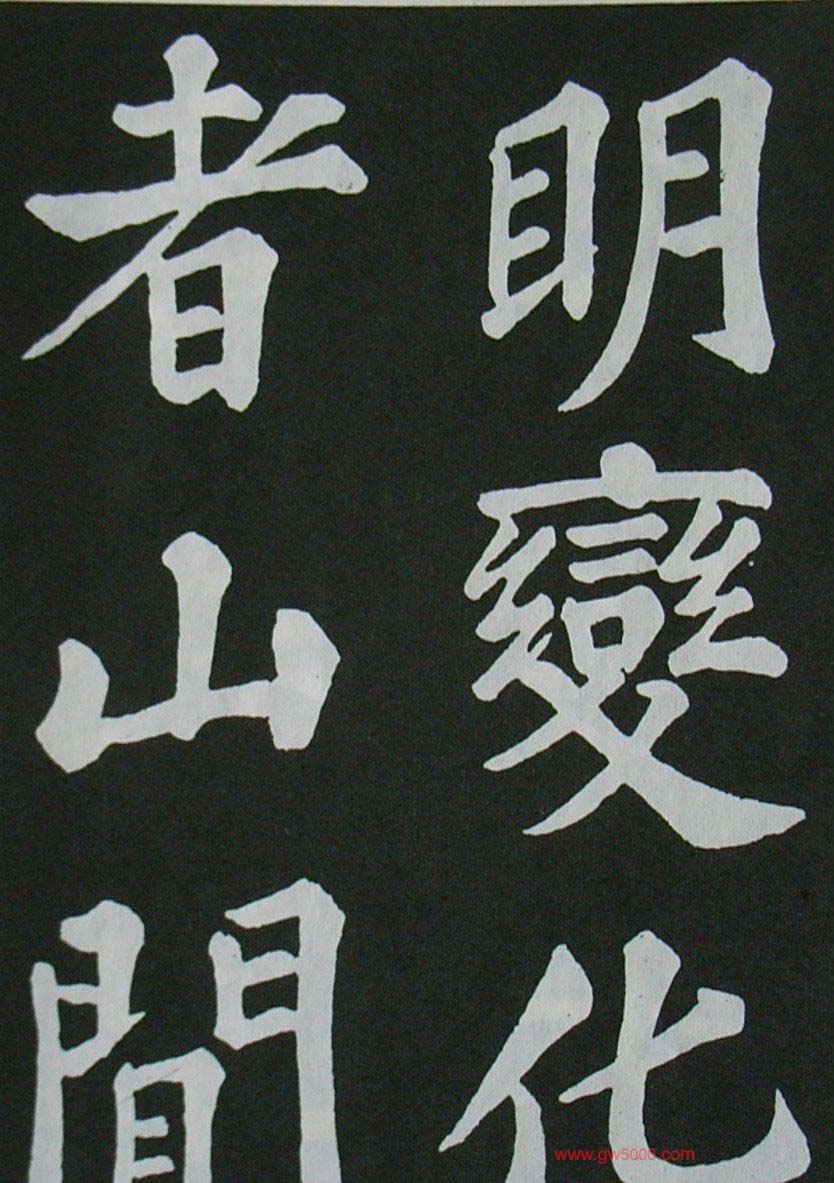 明變化
者山間
www.gw5000.com